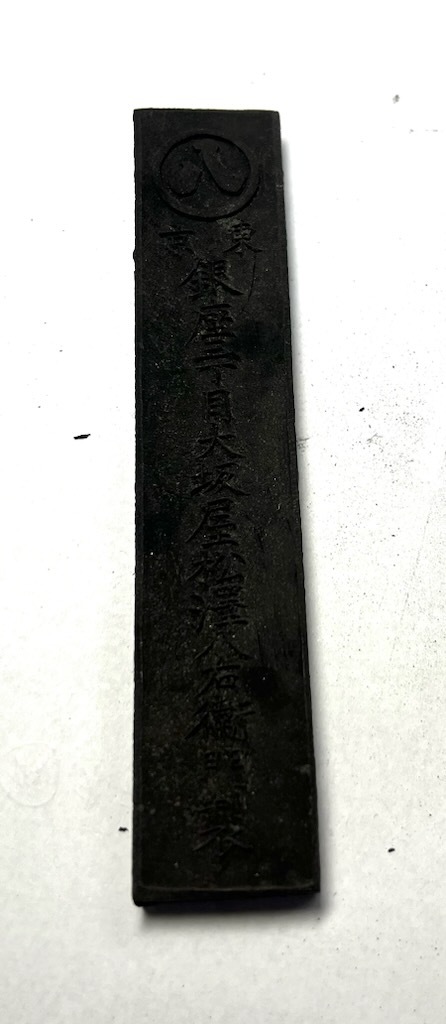 八
東京
銀座二丁目大坂屋松澤八右衛門製